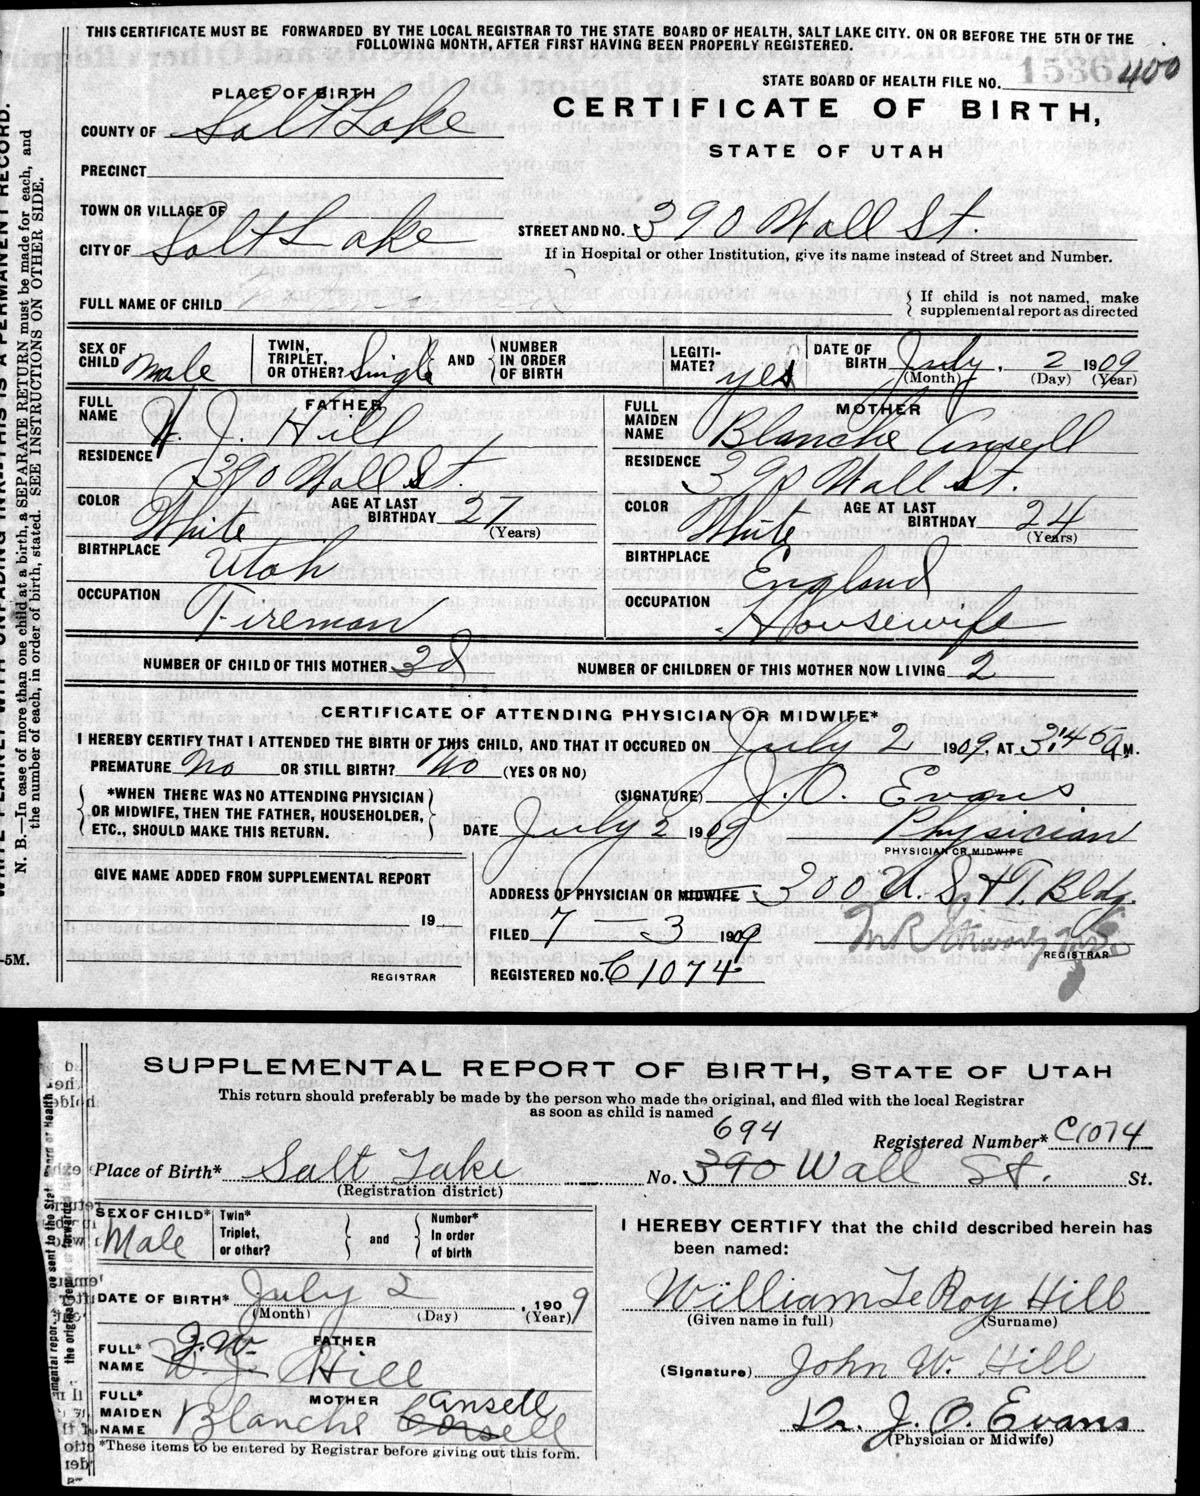 THIS CERTIFICATE MUST BE FORWARDED BY THE LOCAL REGISTRAR TO THE STATE BOARD OF HEALTH, SALT LAKE CITY. ON OR BEFORE THE 5TH OF THE
FOLLOWING MONTH, AFTER FIRST HAVING BEEN PROPERLY REGISTERED.
STATE BOARD OF HEALTH FILE NO. 1536 400
PLACE OF BIRTH
CERTIFICATE OF BIRTH,
COUNTY OF Salt Lake
STATE OF UTAH
PRECINCT
TOWN OR VILLAGE OF
STREET AND NO. 390 Wall St.
CITY OF Salt Lake
If in Hospital or other Institution, give its name instead of Street and Number.
FULL NAME OF CHILD
If child is not named, make
supplemental report as directed
SEX OF CHILD Male
TWIN, TRIPLET, OR OTHER? Single AND NUMBER IN ORDER OF BIRTH
LEGITIMATE? yes
DATE OF BIRTH July, 2 1909
(Month) (Day) (Year)
FATHER
FULL NAME W. J. Hill
RESIDENCE 390 Wall St.
COLOR White AGE AT LAST BIRTHDAY 27 (Years)
BIRTHPLACE Utah
OCCUPATION Fireman
MOTHER
FULL MAIDEN NAME Blanche Ansell
RESIDENCE 390 Wall St.
COLOR White AGE AT LAST BIRTHDAY 24 (Years)
BIRTHPLACE England
OCCUPATION Housewife
NUMBER OF CHILD OF THIS MOTHER 3d NUMBER OF CHILDREN OF THIS MOTHER NOW LIVING 2
CERTIFICATE OF ATTENDING PHYSICIAN OR MIDWIFE*
I HEREBY CERTIFY THAT I ATTENDED THE BIRTH OF THIS CHILD, AND THAT IT OCCURED ON July 2 1909, AT 3:45 A M.
PREMATURE No OR STILL BIRTH? No (YES OR NO)
*WHEN THERE WAS NO ATTENDING PHYSICIAN
OR MIDWIFE, THEN THE FATHER, HOUSEHOLDER,
ETC., SHOULD MAKE THIS RETURN.
(SIGNATURE) J. O. Evans,
DATE July 2 1909 Physician
PHYSICIAN OR MIDWIFE
GIVE NAME ADDED FROM SUPPLEMENTAL REPORT
19
REGISTRAR
ADDRESS OF PHYSICIAN OR MIDWIFE 300 U. S. & T. Bldg.
FILED 7 3 1909
REGISTRAR
REGISTERED NO. C1074
N. B.—In case of more than one child at a birth, a SEPARATE RETURN must be made for each, and
the number of each, in order of birth, stated. SEE INSTRUCTIONS ON OTHER SIDE.
-5M.
SUPPLEMENTAL REPORT OF BIRTH, STATE OF UTAH
This return should preferably be made by the person who made the original, and filed with the local Registrar
as soon as child is named
694
Registered Number* C1074
Place of Birth* Salt Lake No. 390 Wall St. St.
(Registration district)
SEX OF CHILD* Male
Twin* Triplet, or other? and Number* In order of birth
DATE OF BIRTH* July 2, 1909
(Month) (Day) (Year)
FATHER
FULL* NAME J.W. W. J. Hill
MOTHER
FULL* MAIDEN NAME Blanche Ansell
*These items to be entered by Registrar before giving out this form.
I HEREBY CERTIFY that the child described herein has
been named:
William LeRoy Hill
(Given name in full) (Surname)
(Signature) John W. Hill
Dr. J. O. Evans
(Physician or Midwife)